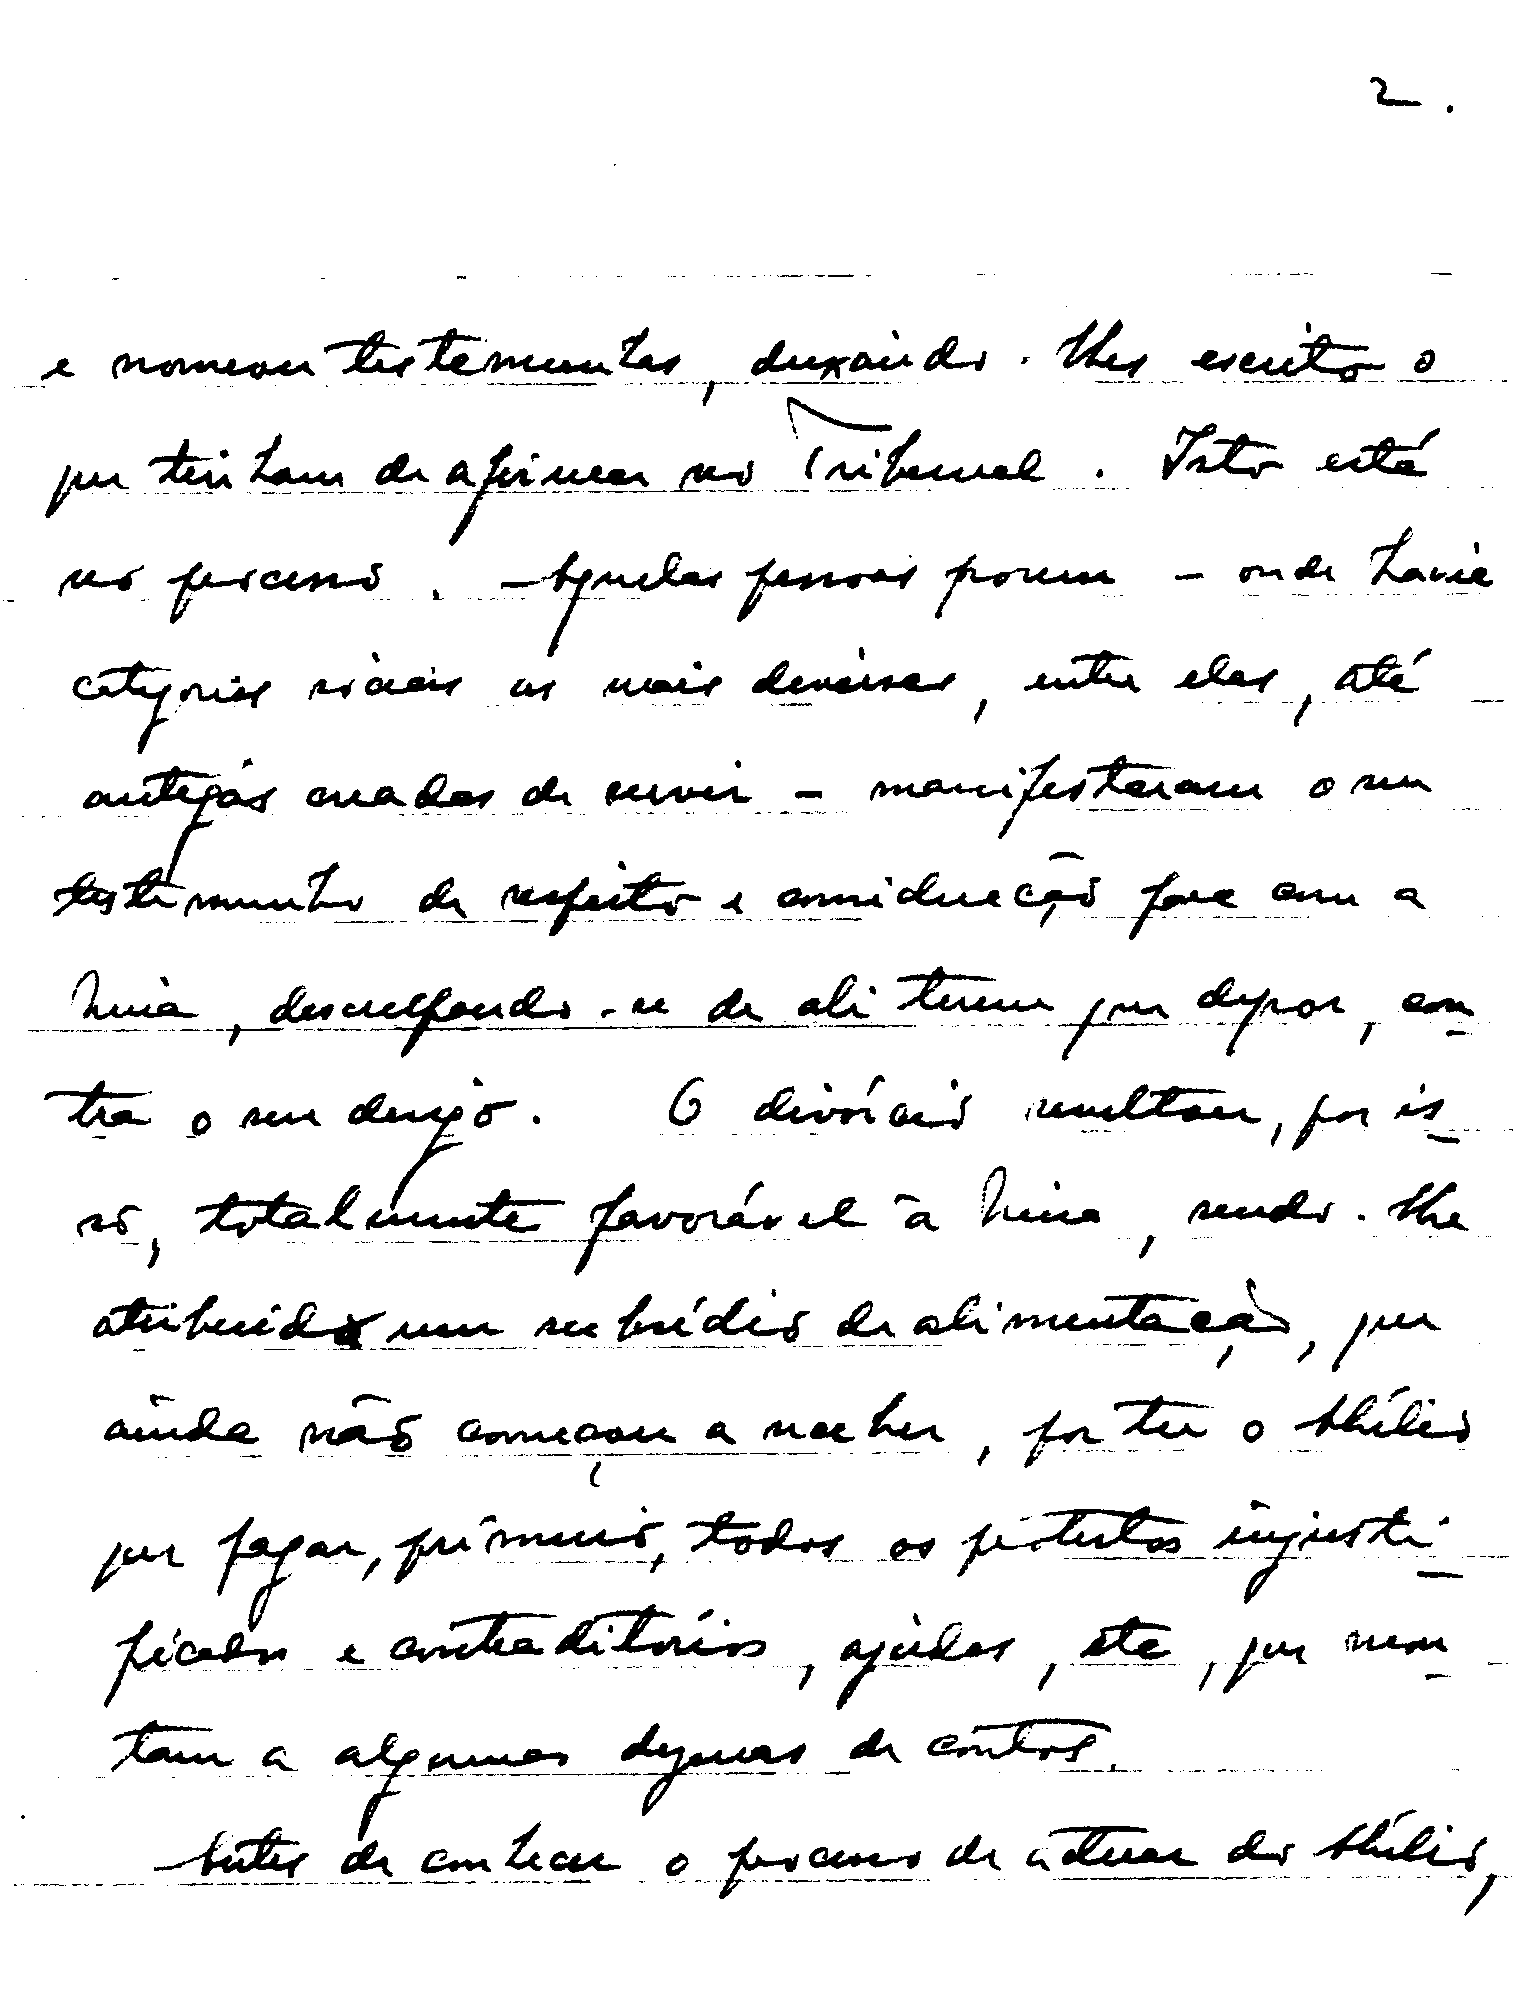 2.
e nomeou testemunhas, deixando-lhes escrito o
que tinham de afirmar no Tribunal. Isto está
no processo. Aquelas pessoas porem - onde havia
categorias sociais as mais diversas, entre elas, até
antigas criadas de servir - manifestaram o seu
testemunho de respeito e consideração para com a
Nina, desculpando-se de ali terem que depor, con_
tra o seu desejo. O divórcio resultou, por is_
so, totalmente favorável à Nina, sendo-lhe
atribuido um subsídio de alimentação, que
ainda não começou a receber, por ter o Hélio
que pagar, primeiro, todos os protestos injusti_
ficados e contraditórios, ajudas, etc, que mon_
tam a algumas dezenas de contos.
Antes de conhecer o processo de actuar do Hélio,